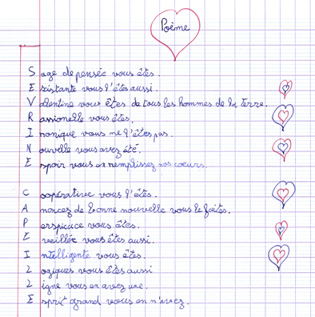 Poème
Sage de pensée vous êtes.
Existante vous l'êtes aussi.
Valentine vous êtes de tous les hommes de la terre.
Rassionelle vous êtes.
Ironique vous ne l'êtes pas.
Nouvelle vous avez été.
Espoir vous en remplissez nos coeurs.
Coopérative vous l'êtes.
Anoncez de bonne nouvelle vous le faites.
Perspicace vous êtes.
Eveillée vous êtes aussi.
Intelligente vous êtes.
Logiques vous êtes aussi
Ligne vous en avez une.
Esprit grand vous en n'avez.